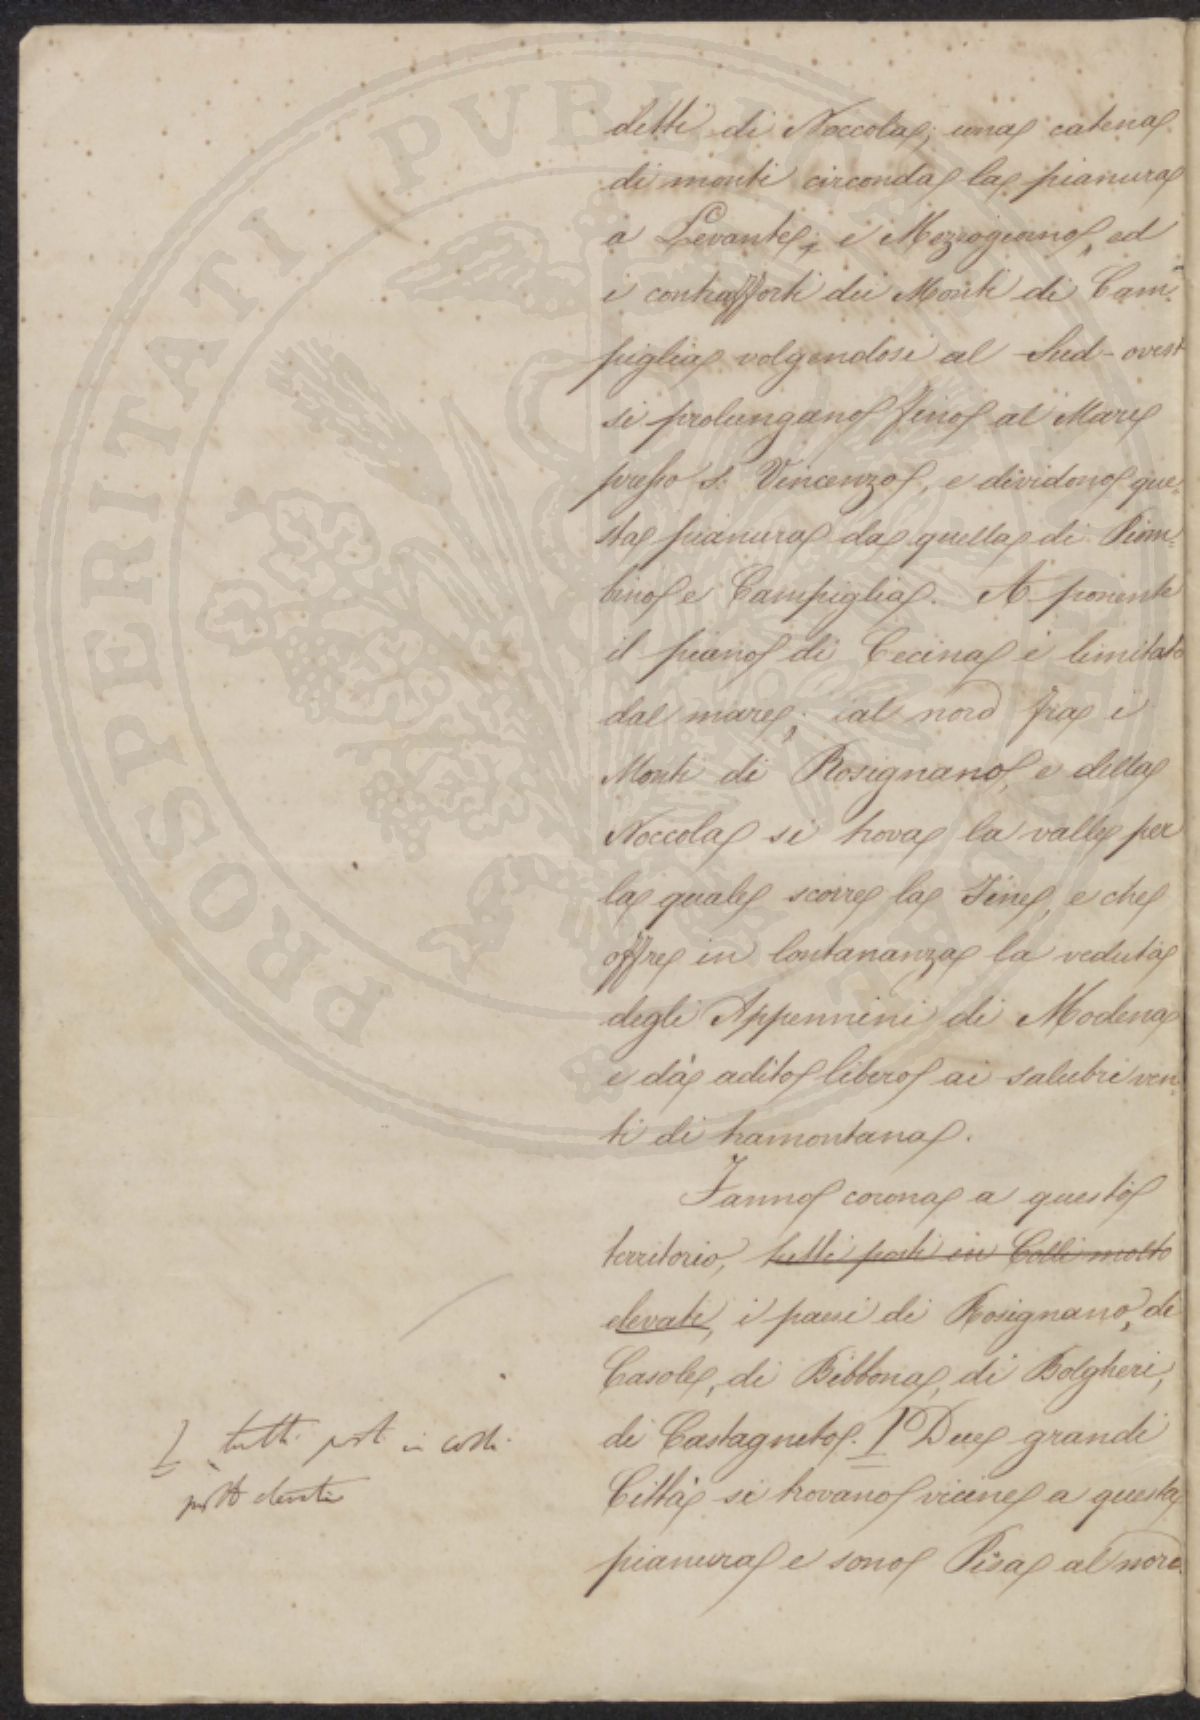 detti di Noccola; una catena
di monti circonda la pianura
a Levante, e Mezzogiorno, ed
i contrafforti dei Monti di Cam-
piglia volgendosi al Sud-ovest
si prolungano fino al Mare
presso S. Vincenzo, e dividono que-
sta pianura da quella di Piom-
bino e Campiglia. A ponente
il piano di Cecina è limitato
dal mare; al nord fra i
Monti di Rosignano, e della
Noccola si trova la valle per
la quale scorre la Fine, e che
offre in lontananza la veduta
degli Appennini di Modena
e dà adito libero ai salubri ven-
ti di tramontana.
Fanno corona a questo
territorio, tutti posti in Colli molto
elevati, i paesi di Rosignano, di
Casole, di Bibbona, di Bolgheri,
di Castagneto. I Due grandi
Città si trovano vicine a questa
pianura e sono Pisa al nord
I tutti posti in colli
molto elevati
PROSPERITATI PVBLICAE